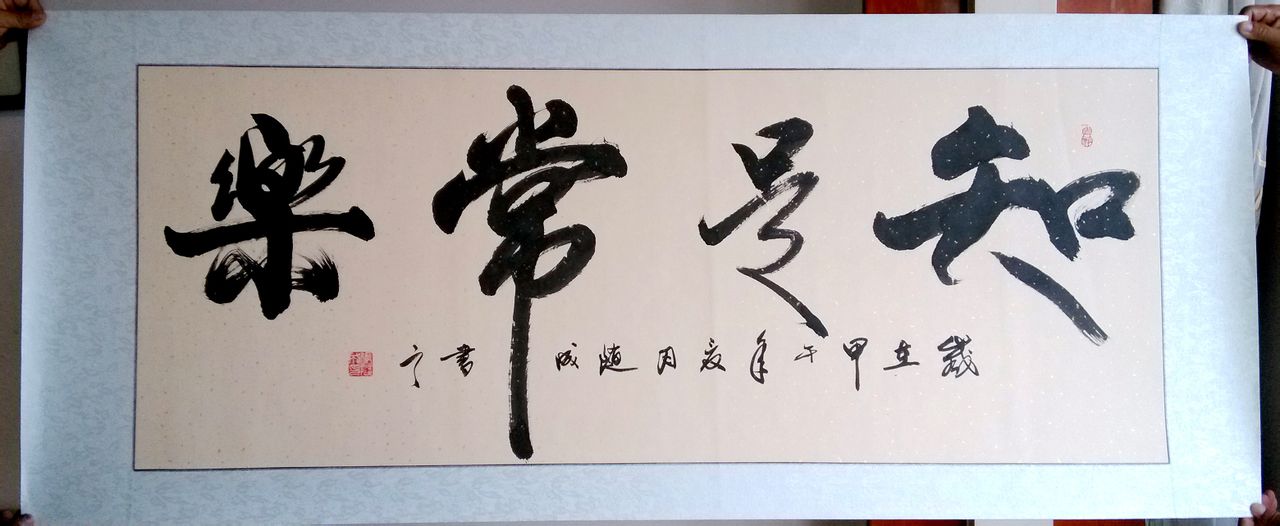 知足常樂
歲在甲午年夏月随成書